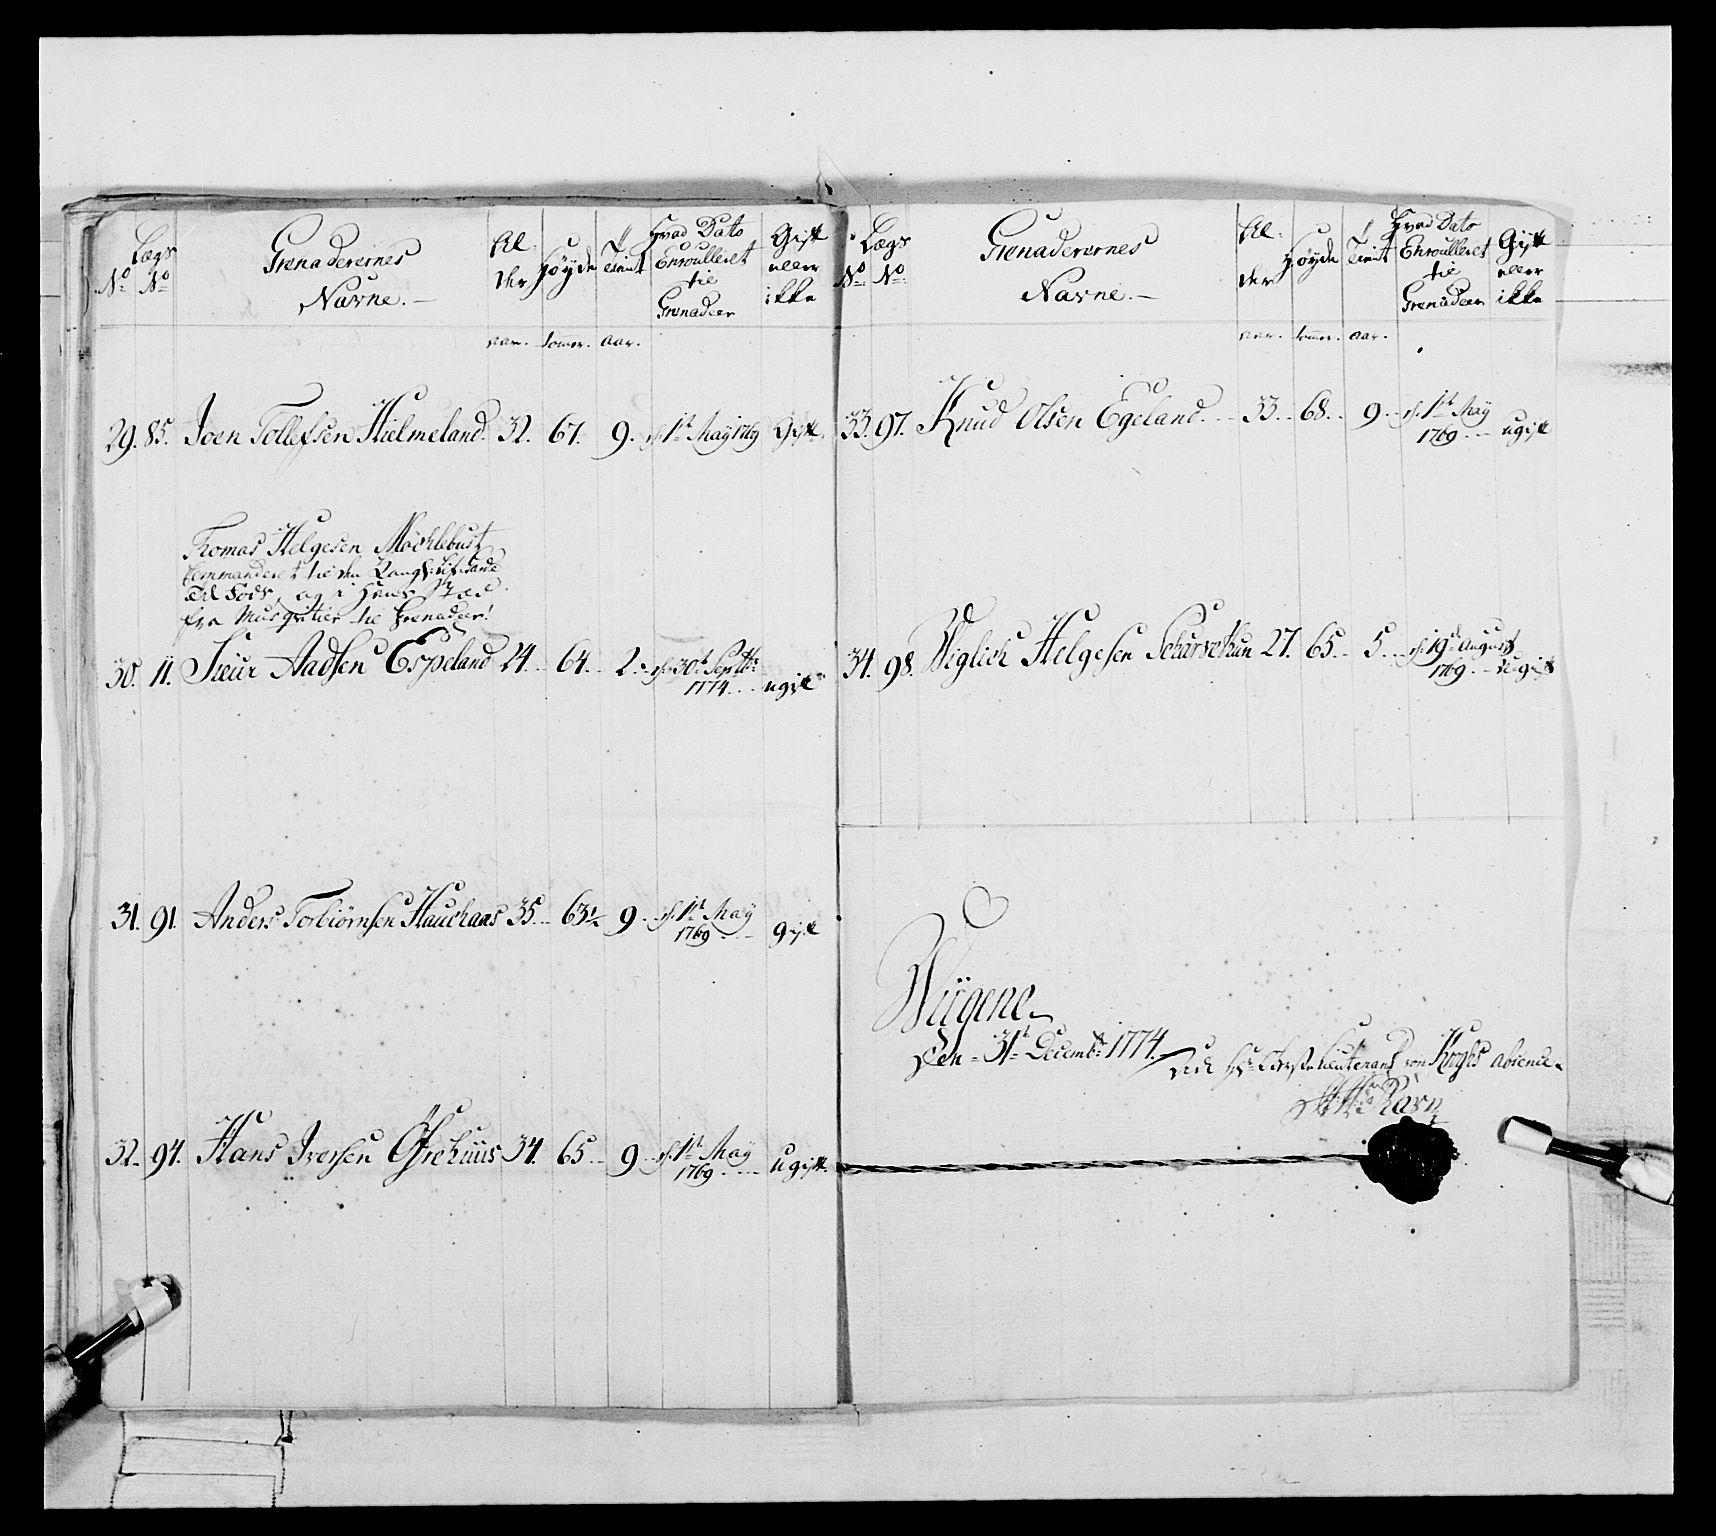 No Lægs No Grenaderernes Navne. Al der Høyde Tient Hvad Dato Enroulleret til Grenadeer Gift eller ikke
aar. tommer. aar.
29. 85. Joen Tollefsen Hielmeland. 32. 67. 9. d. 1st May 1769 Gift.
Thomas Helgesen Möchlebust
Commanderet til den Kongl:
til Fods, og i hans Stæd
fra Musqvetier til Grenadeer!
30. 11. Siur Aadsen Espeland 24. 64. 2. d. 30t Septbr
1774. ugift
31. 91. Anders Torbiörnsen Hauchaas 35. 63½ 9. d. 1st May
1769. gift
32. 94. Hans Iversen Ofrehuus 34. 65. 9. d. 1st May
1769. ugift.
No Lægs No Grenaderernes Navne. Al der Høyde Tient Hvad Dato Enroulleret til Grenadeer Gift eller ikke
aar. tommer. aar.
33. 97. Knud Olsen Egeland. 33. 68. 9. d. 1st May
1769. ugift
34. 98. Wiglich Helgesen 27. 65. 5. d. 19de August
1769. Ugift
Wügene
Den 31t Decembr 1774.
Udi Hr Oberstlieutenant von Kroghs absence.
Ravn